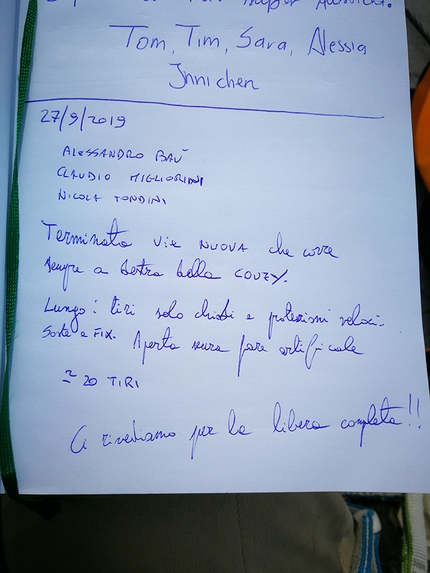 Tom, Tim, Sara, Alessia
Innichen
27/9/2019
ALESSANDRO BAÙ
CLAUDIO MIGLIORINI
NICOLA TONDINI
Terminata vie NUOVA che corre
sempre a destra della COUZY.
Lungo i tiri solo chiodi e protezioni veloci..
Soste a FIX. Aperta senza fare artificiale
≃ 20 TIRI
Ci rivediamo per la libera completa!!